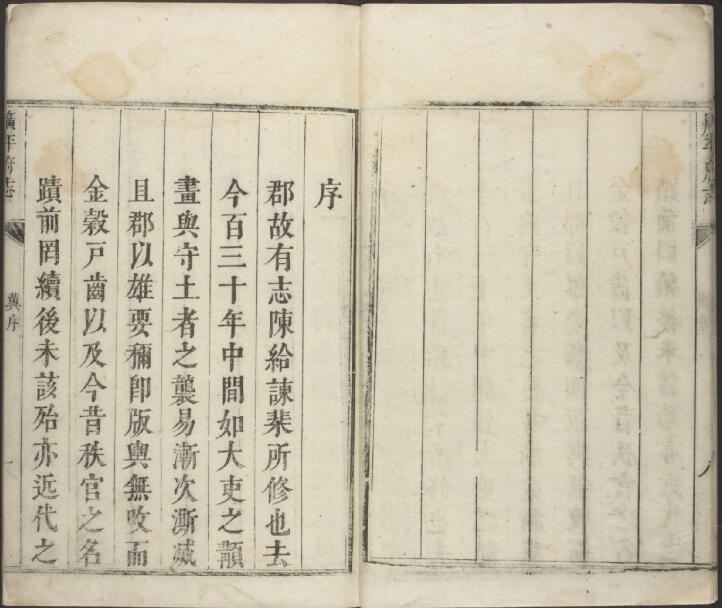 廣平府志
八
序
郡故有志陳給諫棐所修也去
今百三十年中間如大吏之顓
畫與守土者之襲易漸次澌滅
且郡以雄要稱卽版輿無攺而
金穀戸齒以及今昔秩官之名
蹟前罔續後未該殆亦近代之
廣平府志
冀序
一